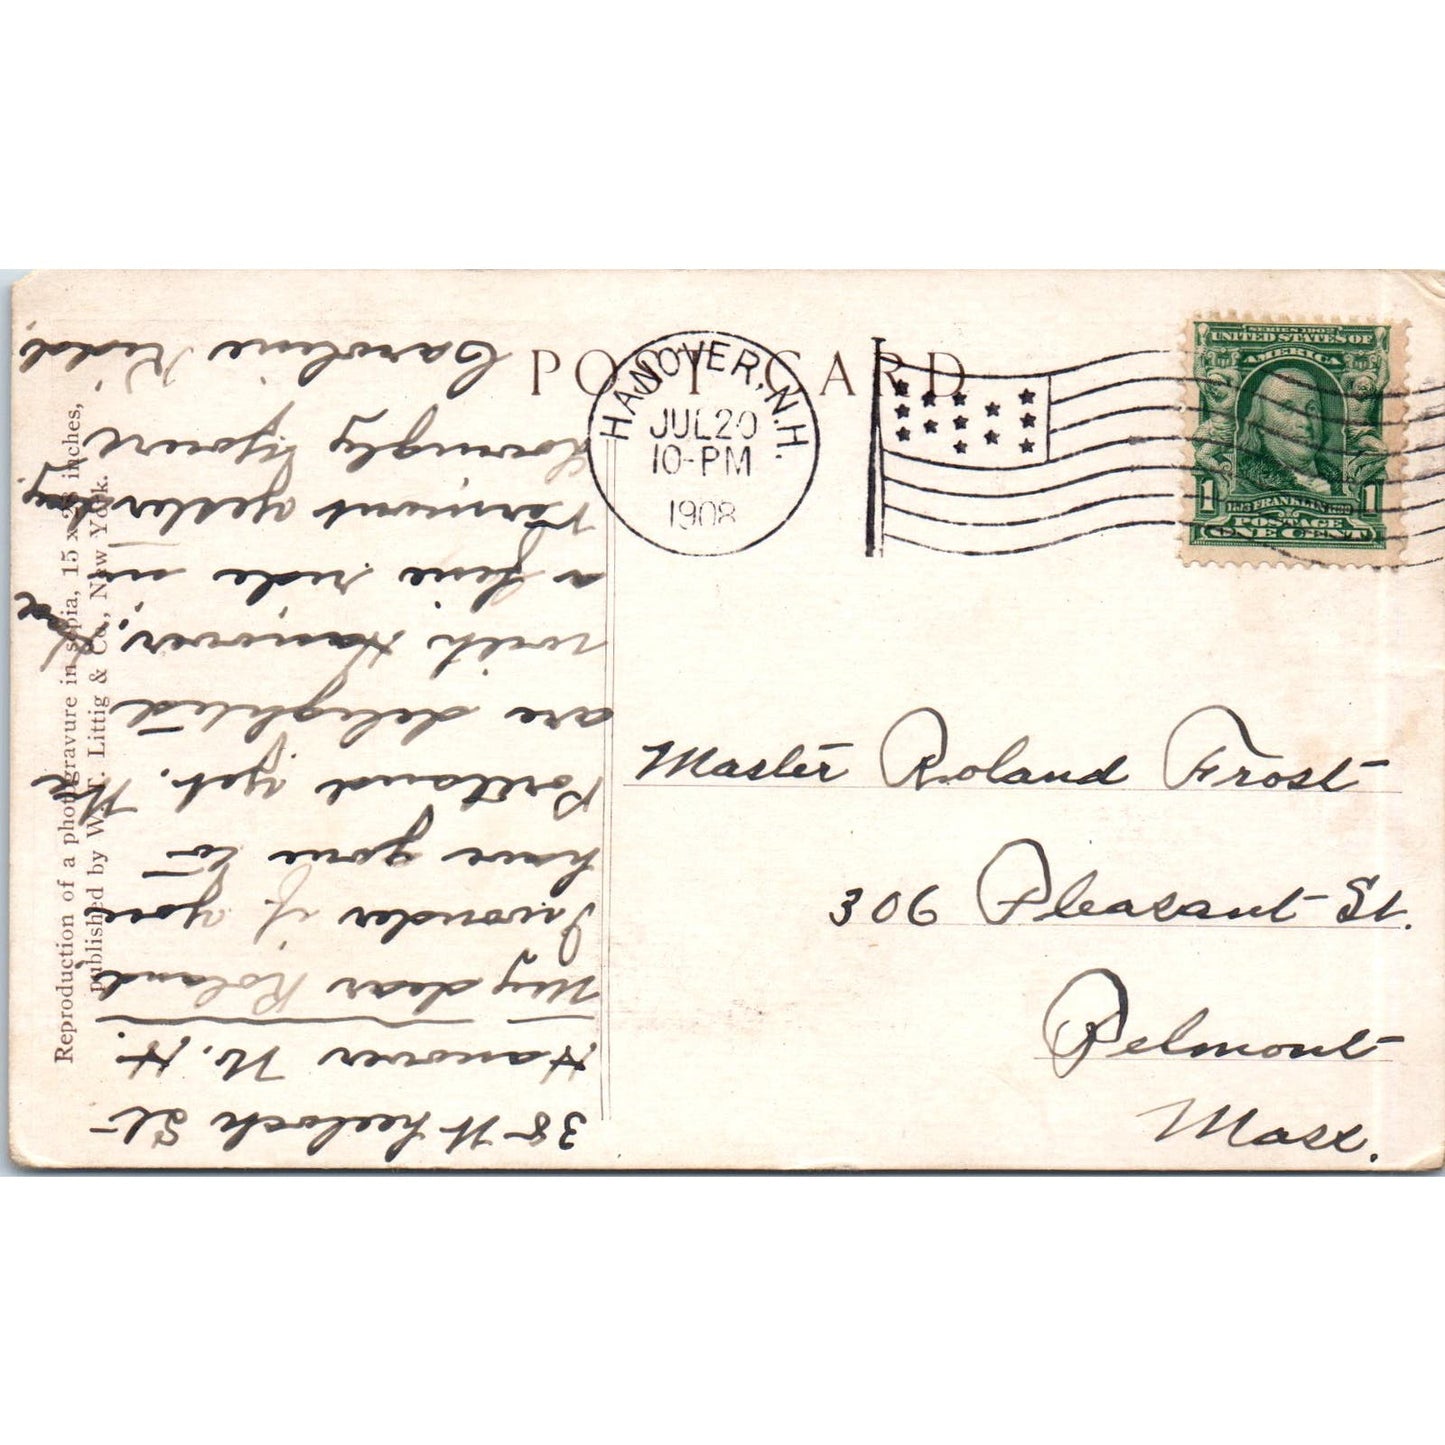 POST CARD
HANOVER, N.H.
JUL 20
10-PM
1908
SERIES 1902
UNITED STATES OF
AMERICA
1 FRANKLIN 1
POSTAGE
ONE CENT
Master Roland Frost
306 Pleasant St.
Belmont
Mass.
38 Wheelock St
Hanover N. H.
My dear Roland
I wonder if you
have gone to
Portland yet. We
are delighted
with Hanover,
a fine ride in
Vermont yester
day.
Lovingly Yours
Caroline Kidd.
Reproduction of a photogravure in sepia, 15 x 28 inches,
published by W. T. Littig & Co., New York.